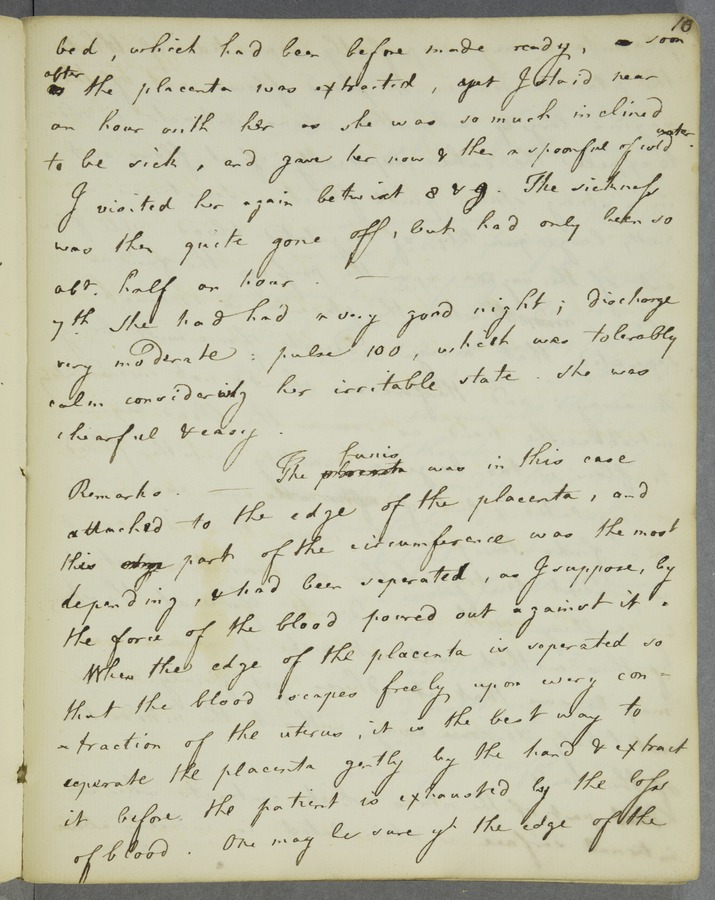 10
bed, which had been before made ready, soon
after the placenta was extracted, yet I staid near
an hour with her as she was so much inclined
to be sick, and gave her now & then a spoonful of cold water.
I visited her again betwixt 8 & 9. The sickness
was then quite gone off, but had only been so
abt. half an hour. —
7th She had had a very good night; discharge
very moderate: pulse 100, which was tolerably
calm considering her irritable state. She was
chearful & easy.
Remarks. — The placenta funis was in this case
attached to the edge of the placenta, and
this edge part of the circumference was the most
depending, & had been seperated, as I suppose, by
the force of the blood poured out against it.
When the edge of the placenta is seperated so
that the blood escapes freely upon every con-
-traction of the uterus, it is the best way to
seperate the placenta gently by the hand & extract
it before the patient is exhausted by the loss
of blood. One may be sure yt the edge of the